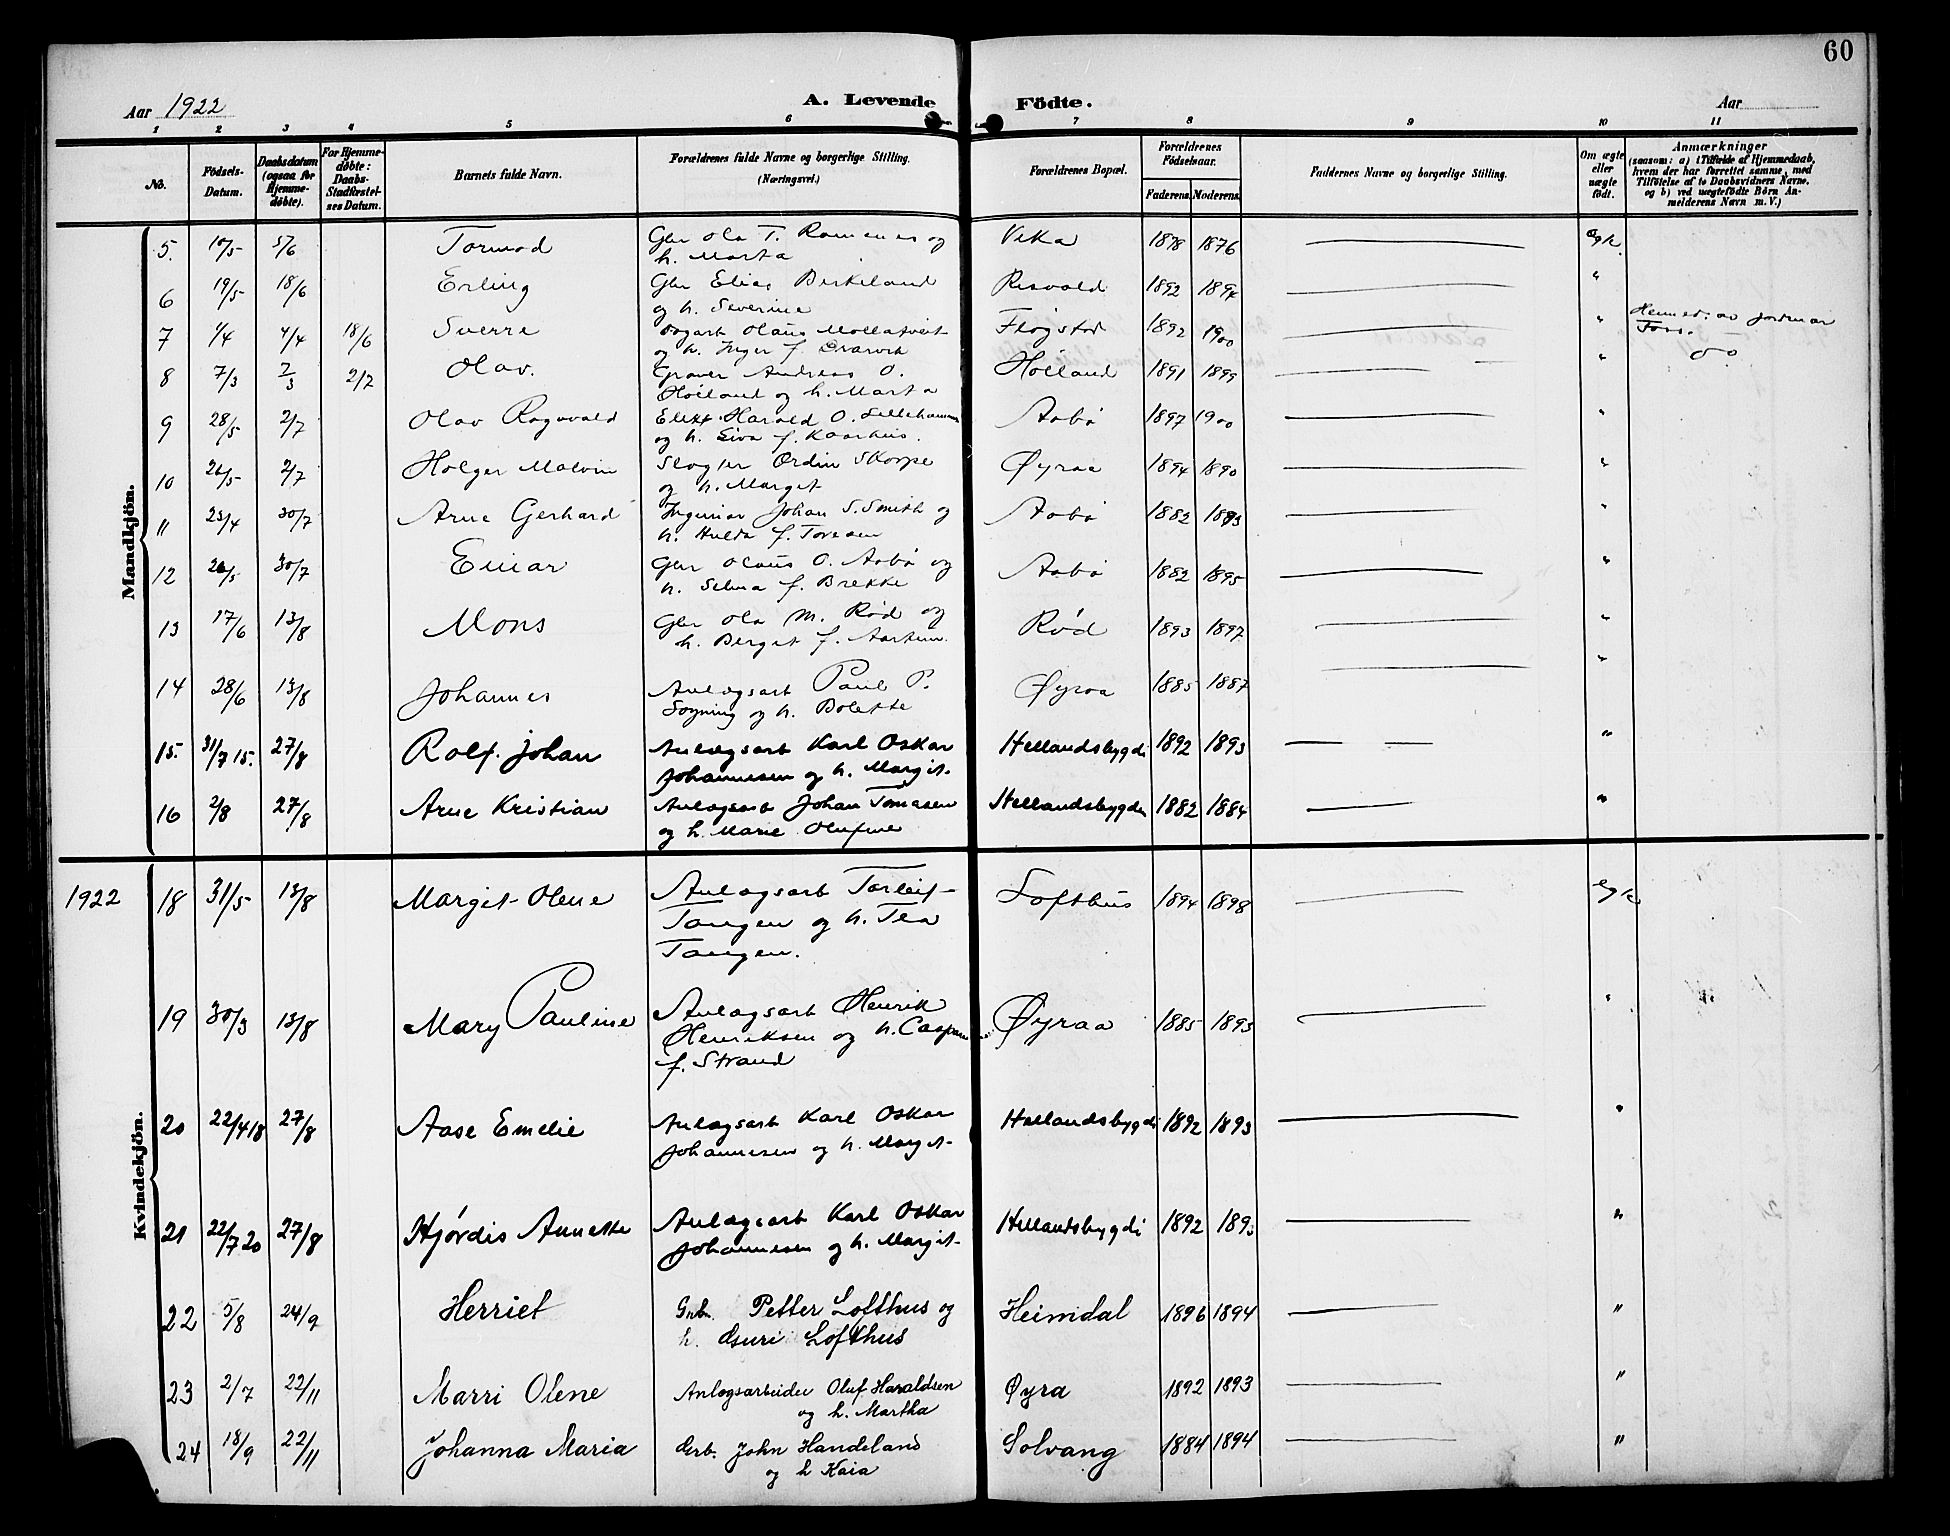 60
Aar 1922 A. Levende Födte. Aar
1 2 3 4 5 6 7 8 9 10 11
No. Födsels-Datum. Daabsdatum (ogsaa for Hjemme-döbte). For Hjemme-döbte: Daabs-Stadfæstel-ses Datum. Barnets fulde Navn. Forældrenes fulde Navne og borgerlige Stilling. (Næringsvei.) Forældrenes Bopæl. Forældrenes Födselsaar. Faderens. Moderens. Faddernes Navne og borgerlige Stilling. Om ægte eller uægte født. Anmærkninger (saasom: a) i Tilfælde af Hjemmedaab, hvem der har forrettet samme, med Tilføielse af to Daabsvidners Navne, og b) ved uægtefödte Börn An-melderens Navn m. V.)
Mandkjön.
5. 10/5 5/6 Tormod Gbr Ola T. og Vika 1878 1876 egte
h. Marta
6 19/5 18/6 Erling Gbr Elias Birkeland Risvold 1892 1894 "
og h. Severine
7 1/4 4/4 18/6 Sverre Olaus Fløgstad 1892 1900 " av jordmor
og h. Inger f.
8 7/3 7/3 2/7 Olav. Graver Andreas O. Høiland 1891 1899 "
Høiland og h. Marta
9 28/5 2/7 Olav Ragnvald Harald O. Lillehammer Aabø 1897 1900 "
og h. Siva f. Kaarhus.
10 26/5 2/7 Holger Malvin Ordin Skorpe Øyraa 1894 1890 "
og h. Marget
11 23/4 30/7 Arne Gerhard Ingeniør Johan S. Smith og Aabø 1882 1893 "
h. Hulda f.
12 26/5 30/7 Einar Gbr Olaus O. Aabø og Aabø 1882 1895 "
h. Selma f. Brekke
13 17/6 13/8 Mons Gbr Ola M. Rød og Rød 1893 1897 "
h. Berget f.
14 28/6 13/8 Johannes Anlægsarb Paul P. Øyraa 1885 1887 "
Sogning og h. Bolette
15. 31/7 15. 27/8 Rolf Johan Anlægsarb Karl Oskar Hellandsbygdi 1892 1893 "
Johannesen og h. Margit
16 2/8 27/8 Arne Kristian Anlægsarb Johan Tomasen Hellandsbygden 1882 1884 "
og h. Marie Olufine
Kvindekjön.
1922 18 31/5 13/8 Margit Olene Anlægsarb Torleif Lofthus 1894 1898 egte
Tangen og h. Tea
Tangen.
19 30/3 13/8 Mary Pauline Anlægsarb Henrik Øyraa 1885 1893 "
Henriksen og h.
f. Strand
20 22/4 18 27/8 Aase Emelie Anlægsarb Karl Oskar Hellandsbygdi 1892 1893 "
Johannesen og h. Margit
21 22/7 20 27/8 Hjørdis Annette Anlægsarb Karl Oskar Hellandsbygdi 1892 1893 "
Johannesen og h. Margit
22 5/8 24/9 Herriet Petter Lofthus og Heimdal 1896 1894 "
h. Guri Lofthus
23 2/7 22/11 Marri Olene Anlægsarbeider Oluf Haraldsen Øyra 1892 1893 "
og h. Martha
24 18/9 22/11 Johanna Maria John Handeland Solvang 1884 1894 "
og h Kaia